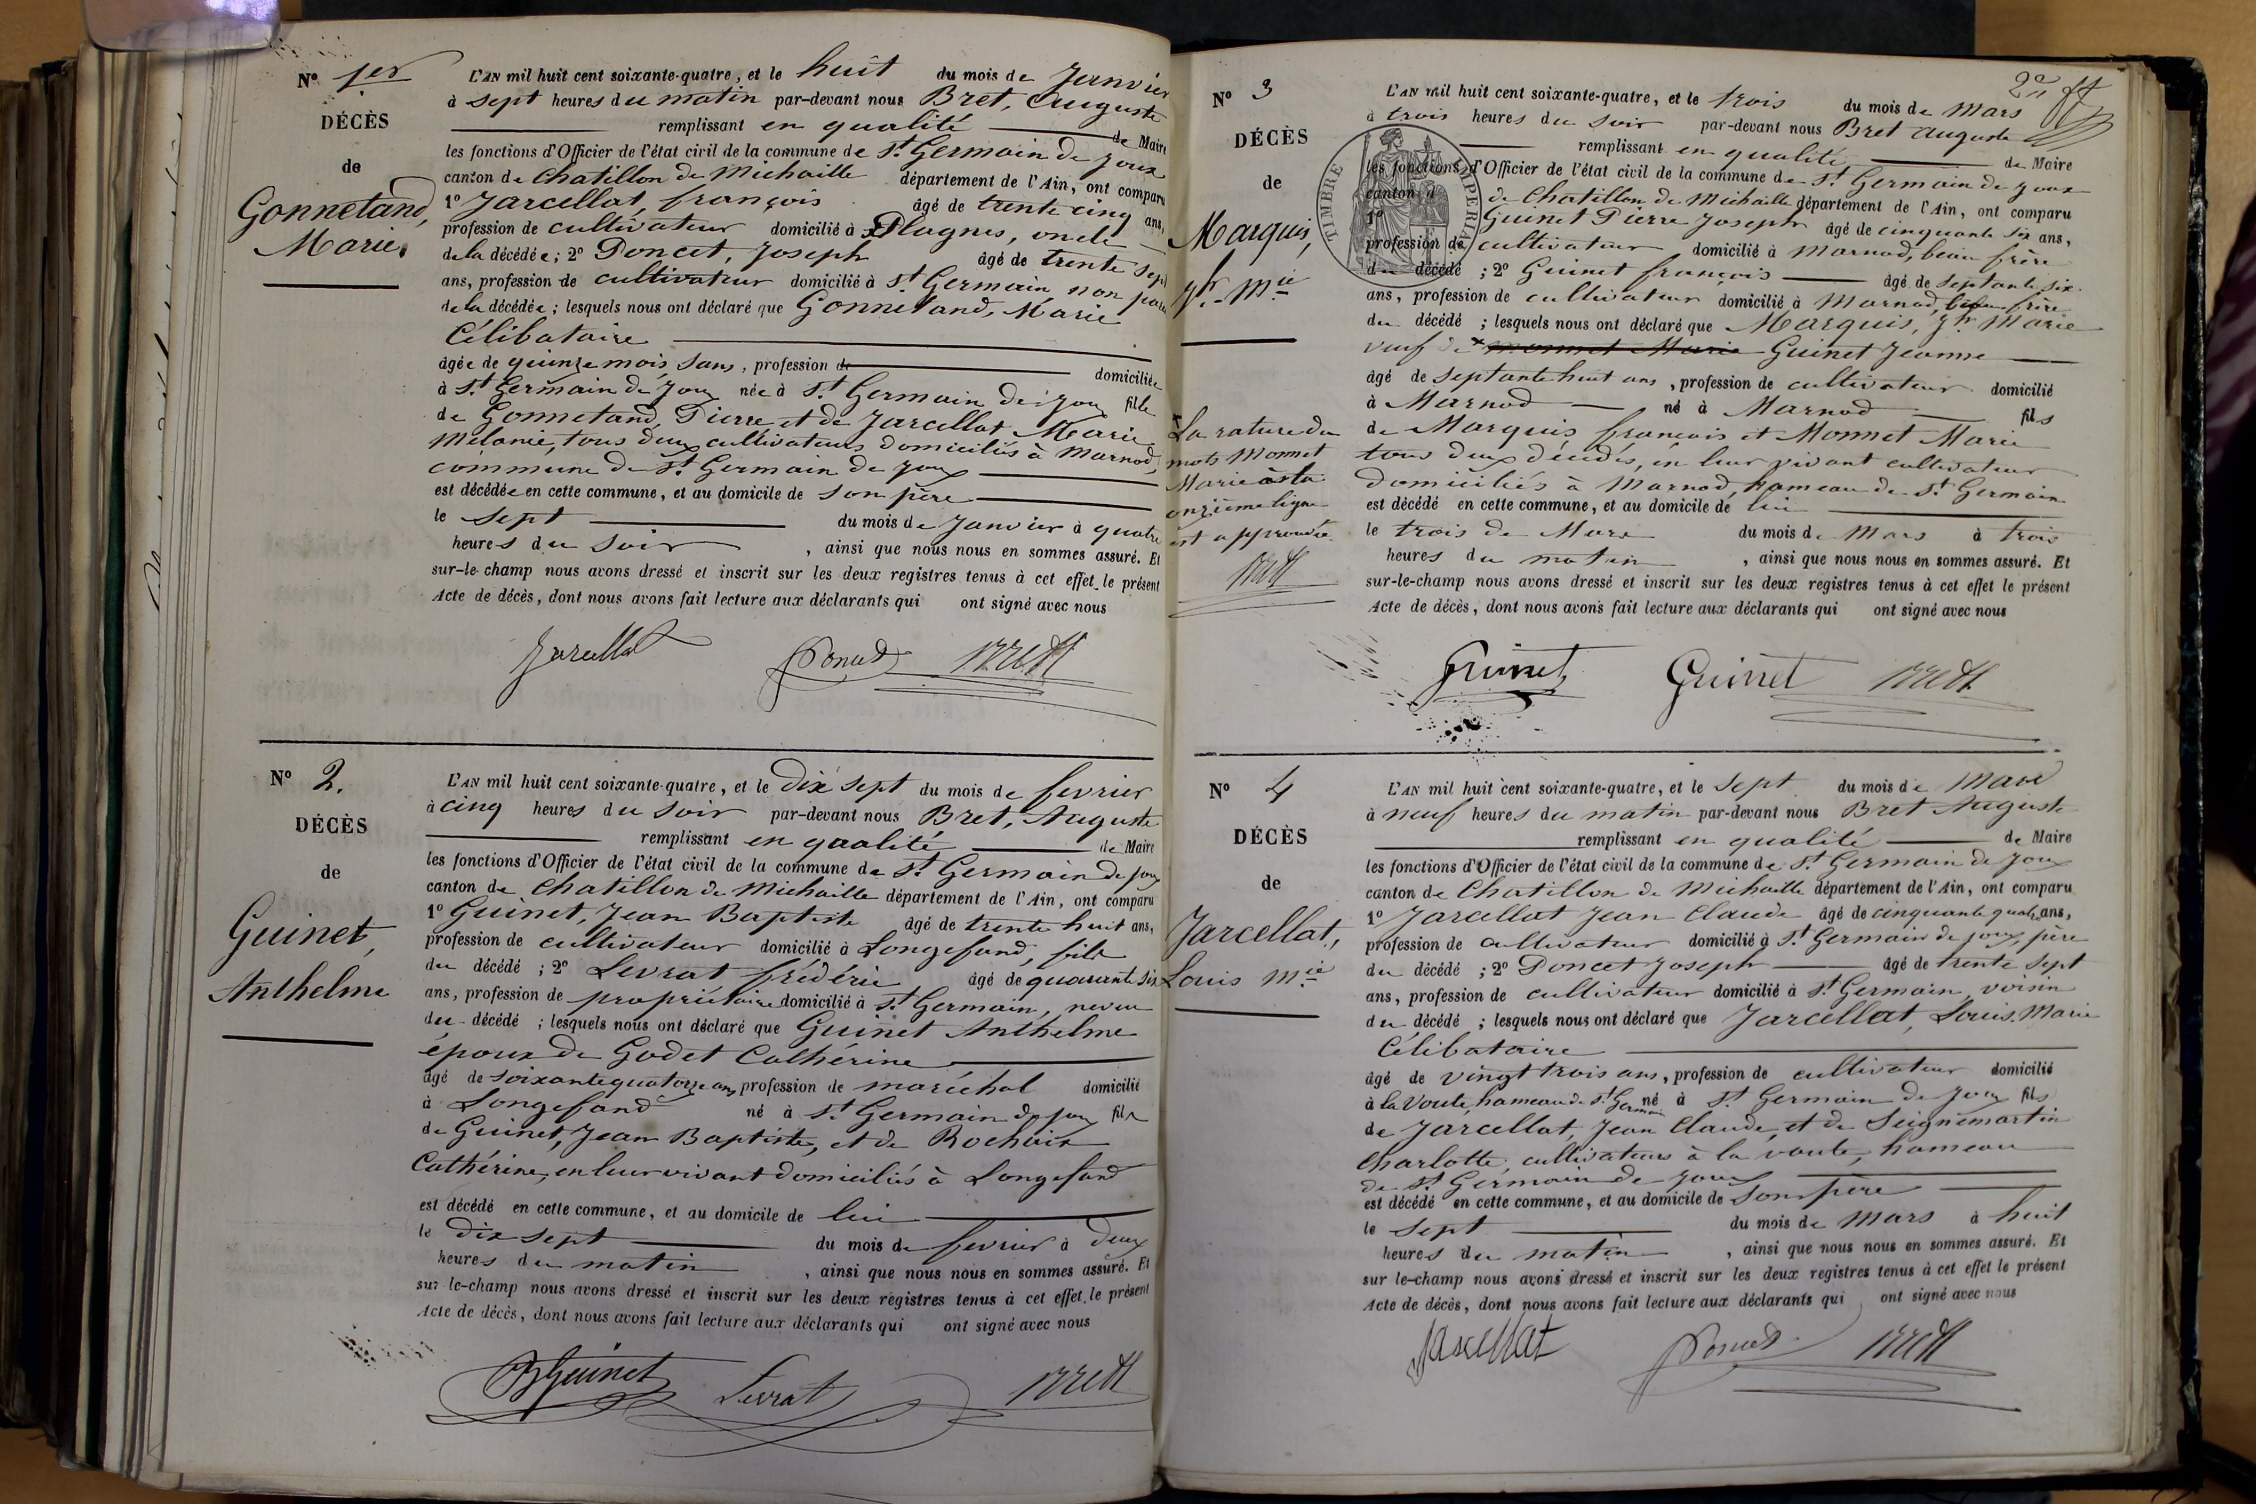 N° 1er
DÉCÈS
de
Gonnetand,
Marie.
L'AN mil huit cent soixante-quatre, et le huit du mois de Janvier
à sept heures du matin par-devant nous Bret, Auguste
remplissant en qualité de Maire
les fonctions d'Officier de l'état civil de la commune de St. Germain de Joux
canton de Chatillon de Michaille département de l'Ain, ont comparu
1° Jarcellat, françois âgé de trente cinq ans,
profession de cultivateur domicilié à Plagnes, oncle
de la décédée; 2° Poncet, Joseph âgé de trente sept
ans, profession de cultivateur domicilié à St. Germain non
de la décédée; lesquels nous ont déclaré que Gonnetand, Marie
Célibataire
âgée de quinze mois, sans, profession de domiciliée
à St. Germain de Joux née à St. Germain de Joux fille
de Gonnetand, Pierre et de Jarcellat Marie
Mélanie, tous deux cultivateurs domiciliés à Marnod
commune de St. Germain de Joux
est décédée en cette commune, et au domicile de son père
le sept du mois de Janvier à quatre
heures du soir, ainsi que nous nous en sommes assuré. Et
sur-le-champ nous avons dressé et inscrit sur les deux registres tenus à cet effet le présent
Acte de décès, dont nous avons fait lecture aux déclarants qui ont signé avec nous
Jarcellat Poncet Brett
N° 2.
DÉCÈS
de
Guinet,
Anthelme
L'AN mil huit cent soixante-quatre, et le dix sept du mois de fevrier
à cinq heures du soir par-devant nous Bret, Auguste
remplissant en qualité de Maire
les fonctions d'Officier de l'état civil de la commune de St. Germain de Joux
canton de Chatillon de Michaille département de l'Ain, ont comparu
1° Guinet, Jean Baptiste âgé de trente huit ans,
profession de cultivateur domicilié à Longefand, fils
du décédé; 2° Levrat frédéric âgé de quarante six
ans, profession de propriétaire domicilié à St. Germain, neveu
du décédé; lesquels nous ont déclaré que Guinet Anthelme
époux de Godet Cathérine
âgé de soixante quatorze ans, profession de maréchal domicilié
à Longefand né à St. Germain de Joux fils
de Guinet, Jean Baptiste, et de Rochaix
Cathérine, en leur vivant domiciliés à Longefand
est décédé en cette commune, et au domicile de lui
le dix sept du mois de fevrier à deux
heures du matin, ainsi que nous nous en sommes assuré. Et
sur le-champ nous avons dressé et inscrit sur les deux registres tenus à cet effet le présent
Acte de décès, dont nous avons fait lecture aux déclarants qui ont signé avec nous
JBGuinet Levrat Brett
2e
N° 3
DÉCÈS
de
Marquis,
Jh. Mie
La rature du
mots Monnet
Marie à la
onzième ligne
est approuvée
Brett
TIMBRE IMPERIAL
L'AN mil huit cent soixante-quatre, et le trois du mois de Mars
à trois heures du soir par-devant nous Bret Auguste
remplissant en qualité de Maire
les fonctions d'Officier de l'état civil de la commune de St. Germain de Joux
canton d de Chatillon de Michaille département de l'Ain, ont comparu
1° Guinet Pierre Joseph âgé de cinquante six ans,
profession de cultivateur domicilié à Marnod, beau frère
du décédé; 2° Guinet françois âgé de septante six
ans, profession de cultivateur domicilié à Marnod, beau frère
du décédé; lesquels nous ont déclaré que Marquis, Jh Marie
veuf de × monnet Marie Guinet Jeanne
âgé de septante huit ans, profession de cultivateur domicilié
à Marnod né à Marnod fils
de Marquis françois et Monnet Marie
tous deux décédés, en leur vivant cultivateur
domiciliés à Marnod, hameau de St. Germain
est décédé en cette commune, et au domicile de lui
le trois de Mars du mois de Mars à trois
heures du matin, ainsi que nous nous en sommes assuré. Et
sur-le-champ nous avons dressé et inscrit sur les deux registres tenus à cet effet le présent
Acte de décès, dont nous avons fait lecture aux déclarants qui ont signé avec nous
Guinet Guinet Brett
N° 4
DÉCÈS
de
Jarcellat,
Louis Mie
L'AN mil huit cent soixante-quatre, et le sept du mois de Mars
à neuf heures du matin par-devant nous Bret Auguste
remplissant en qualité de Maire
les fonctions d'Officier de l'état civil de la commune de St. Germain de Joux
canton de Chatillon de Michaille département de l'Ain, ont comparu
1° Jarcellat Jean Claude âgé de cinquante quatre ans,
profession de cultivateur domicilié à St. Germain de joux, père
du décédé; 2° Poncet Joseph âgé de trente sept
ans, profession de cultivateur domicilié à St. Germain, voisin
du décédé; lesquels nous ont déclaré que Jarcellat, Louis Marie
Célibataire
âgé de vingt trois ans, profession de cultivateur domicilié
à la Voute, hameau de St. Germain né à St. Germain de Joux fils
de Jarcellat, Jean Claude, et de Seignemartin
Charlotte, cultivateurs à la voute, hameau
de St. Germain de Joux
est décédé en cette commune, et au domicile de son père
le sept du mois de Mars à huit
heures du matin, ainsi que nous nous en sommes assuré. Et
sur le-champ nous avons dressé et inscrit sur les deux registres tenus à cet effet le présent
Acte de décès, dont nous avons fait lecture aux déclarants qui ont signé avec nous
Jarcellat Poncet Brett